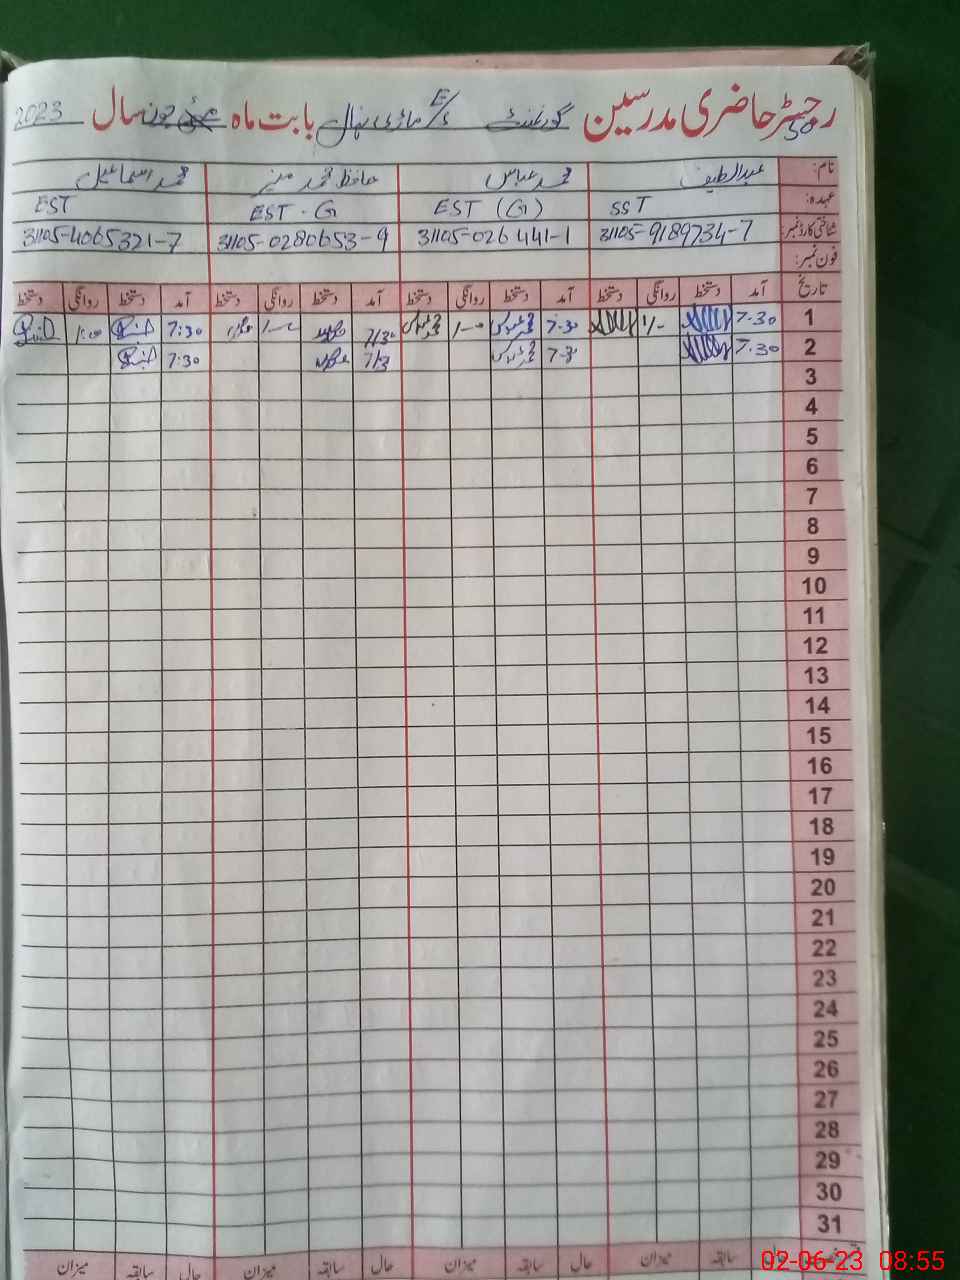 رجسٹر حاضری مدرسین گورنمنٹ E/S ماڑی نہال بابت ماہ مئی جون سال 2023
نام: عبدالطیف محمد عباس حافظ محمد منیر محمد اسماعیل
عہدہ: SST EST (G) EST - G EST
شناختی کارڈ نمبر: 31105-9189734-7 31105-026441-1 31105-0280653-9 31105-4065321-7
فون نمبر:
تاریخ آمد دستخط روانگی دستخط آمد دستخط روانگی دستخط آمد دستخط روانگی دستخط آمد دستخط روانگی دستخط
1 7-30 1/- 7-30 1-00 7/30 1-00 7:30 1:00
2 7-30 7-3 7/3 7:30
3
4
5
6
7
8
9
10
11
12
13
14
15
16
17
18
19
20
21
22
23
24
25
26
27
28
29
30
31
حال سابقہ میزان حال سابقہ میزان حال سابقہ میزان
02-06-23 08:55